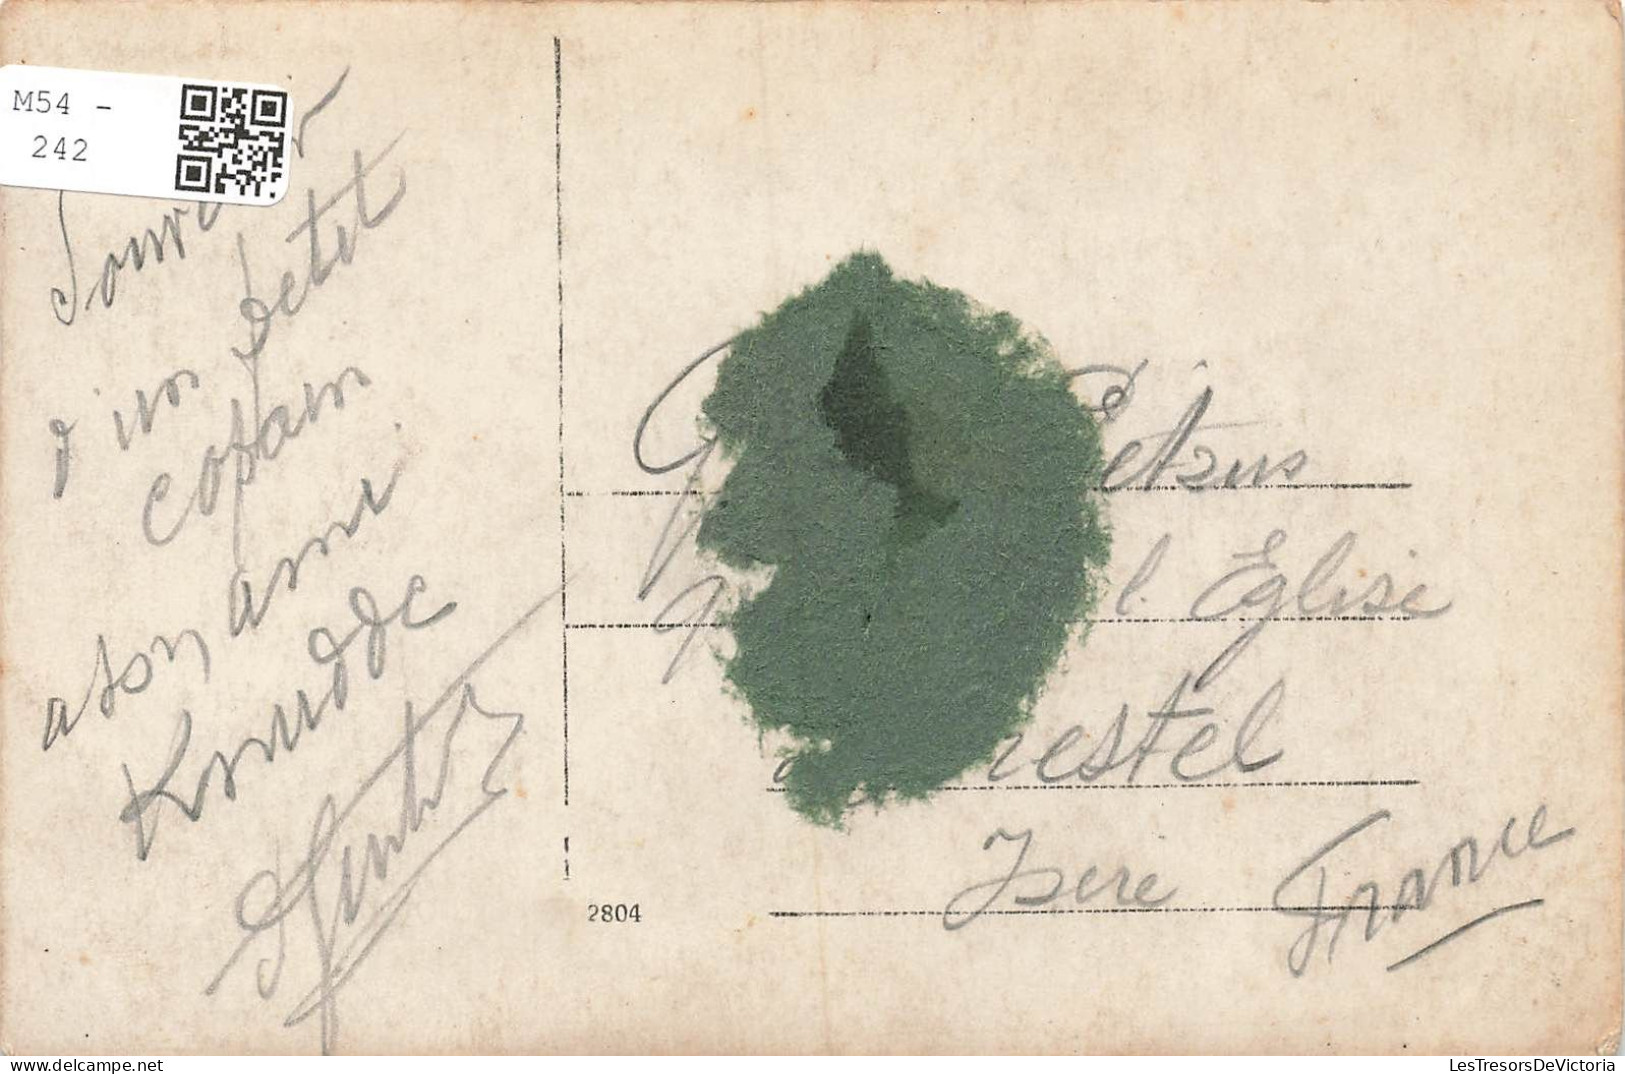 M54 -
242
Souvenir
d'un petit
copain
a son ami
Knudde
Pietrus
l. Eglise
restel
Isere
France
2804
LesTresorsDeVictoria